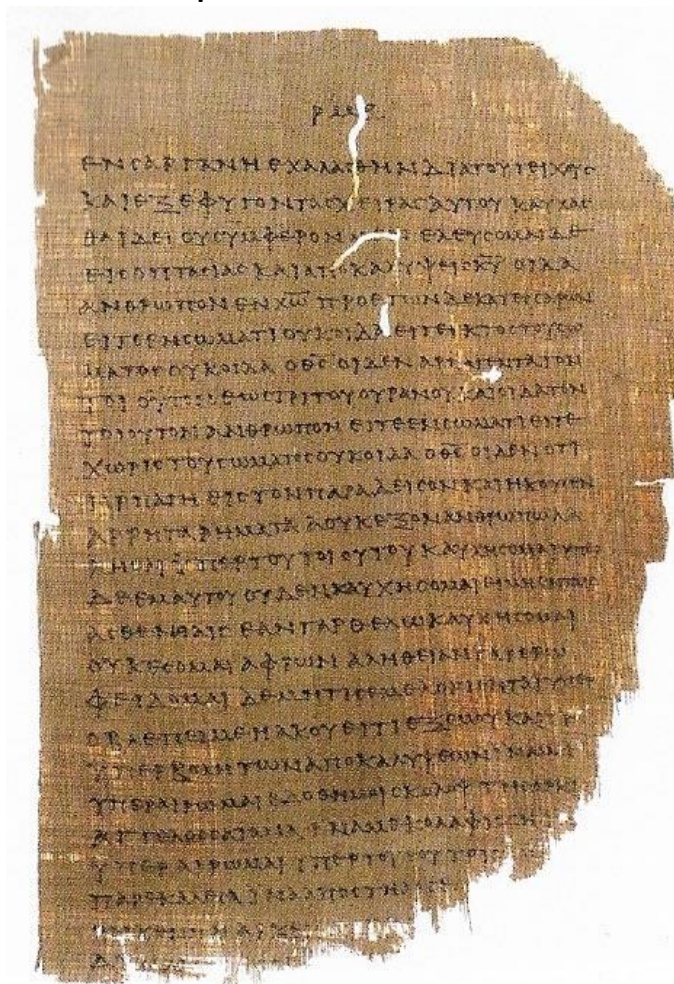 ΕΝϹΑΡΓΑΝΗΕΧΑΛΑϹΘΗΝΔΙΑΤΟΥΤΕΙΧΟΥϹ
ΚΑΙΕΞΕΦΥΓΟΝΤΑϹΧΕΙΡΑϹΑΥΤΟΥ ΚΑΥΧΑϹ
ΘΑΙΔΕΙ ΟΥϹΥΜΦΕΡΟΝ ΕΛΕΥϹΟΜΑΙΔΕ
ΕΙϹΟΠΤΑϹΙΑϹΚΑΙΑΠΟΚΑΛΥΨΕΙϹΚ̅Υ̅ ΟΙΔΑ
ΑΝΘΡΩΠΟΝΕΝΧ̅Ω̅ ΠΡΟΕΤΩΝΔΕΚΑΤΕϹϹΑΡΩΝ
ΕΙΤΕΕΝϹΩΜΑΤΙΟΥΚΟΙΔΑ ΕΙΤΕΕΚΤΟϹΤΟΥϹΩ
ΜΑΤΟϹ ΟΥΚΟΙΔΑ ΟΘ̅Ϲ̅ ΟΙΔΕΝ ΑΡΠΑΓΕΝΤΑΤΟΝ
ΤΟΙΟΥΤΟΝ ΕΩϹΤΡΙΤΟΥΟΥΡΑΝΟΥΚΑΙΟΙΔΑΤΟΝ
ΤΟΙΟΥΤΟΝΑΝΘΡΩΠΟΝ ΕΙΤΕΕΝϹΩΜΑΤΙΕΙΤΕ
ΧΩΡΙϹΤΟΥϹΩΜΑΤΟϹΟΥΚΟΙΔΑ ΟΘ̅Ϲ̅ ΟΙΔΕΝΟΤΙ
ΗΡΠΑΓΗΕΙϹΤΟΝΠΑΡΑΔΕΙϹΟΝΚΑΙΗΚΟΥϹΕΝ
ΑΡΡΗΤΑΡΗΜΑΤΑ ΑΟΥΚΕΞΟΝΑΝΘΡΩΠΩΛΑ
ΛΗϹΑΙ ΥΠΕΡΤΟΥΤΟΙΟΥΤΟΥΚΑΥΧΗϹΟΜΑΙΥΠΕΡ
ΔΕΕΜΑΥΤΟΥΟΥΔΕΝΚΑΥΧΗϹΟΜΑΙΕΙΜΗΕΝΤΑΙϹ
ΑϹΘΕΝΕΙΑΙϹ ΕΑΝΓΑΡΘΕΛΩΚΑΥΧΗϹΟΜΑΙ
ΟΥΚΕϹΟΜΑΙΑΦΡΩΝ ΑΛΗΘΕΙΑΝΓΑΡΕΡΩ
ΦΕΙΔΟΜΑΙ ΔΕΜΗΤΙϹΕΜΕΛΟΓΙϹΗΤΑΙΥΠΕΡ
ΟΒΛΕΠΕΙΜΕΗΑΚΟΥΕΙΤΙΕΞΕΜΟΥΚΑΙΤΗ
ΥΠΕΡΒΟΛΗΤΩΝΑΠΟΚΑΛΥΨΕΩΝΙΝΑΜΗ
ΥΠΕΡΑΙΡΩΜΑΙΕΔΟΘΗΜΟΙϹΚΟΛΟΨΤΗϹΑΡΚΙ
ΑΓΓΕΛΟϹϹΑΤΑΝΑΙΝΑΜΕΚΟΛΑΦΙΖΗ
ΥΠΕΡΑΙΡΩΜΑΙΥΠΕΡΤΟΥΤΟΥΤΡΙϹ
ΠΑΡΕΚΑΛΕϹΑΙΝΑΑΠΟϹΤΗ